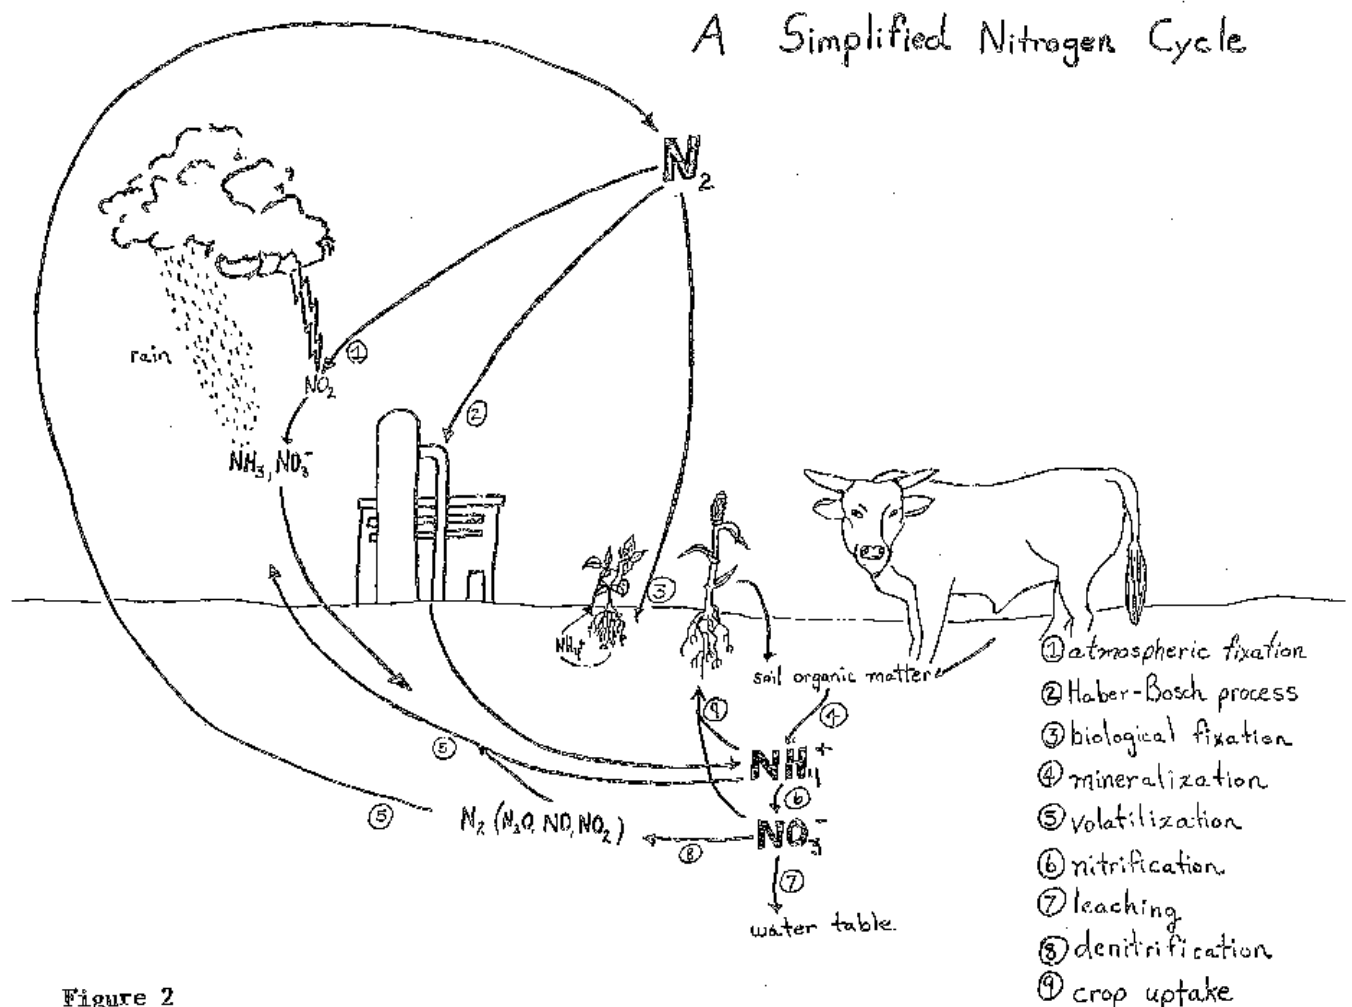 A Simplified Nitrogen Cycle
N₂
rain
①
NO₂
②
NH₃, NO₃⁻
③
NH₄⁺
soil organic matter
⑨
④
⑤
NH₄⁺
⑥
⑤
N₂ (N₂O, NO, NO₂)
⑧
NO₃⁻
⑦
water table
① atmospheric fixation
② Haber-Bosch process
③ biological fixation
④ mineralization
⑤ volatilization
⑥ nitrification
⑦ leaching
⑧ denitrification
⑨ crop uptake
Figure 2